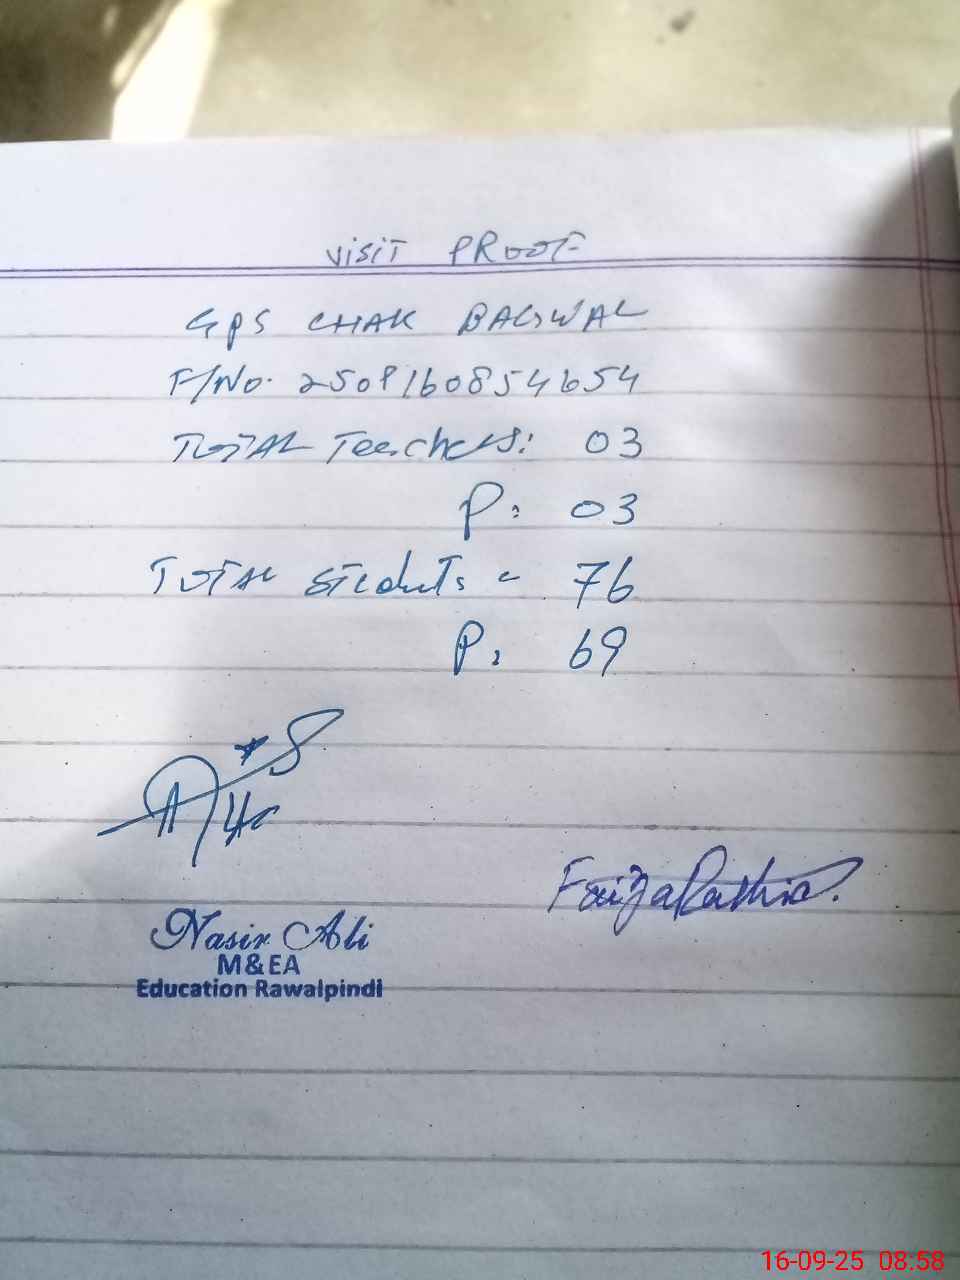 VISIT PROOF
GPS CHAK BALWAL
F/No. 2509160854654
TOTAL Teachers: 03
P: 03
TOTAL Students = 76
P: 69
Faiza Rashid.
Nasir Ali
M&EA
Education Rawalpindi
16-09-25 08:58